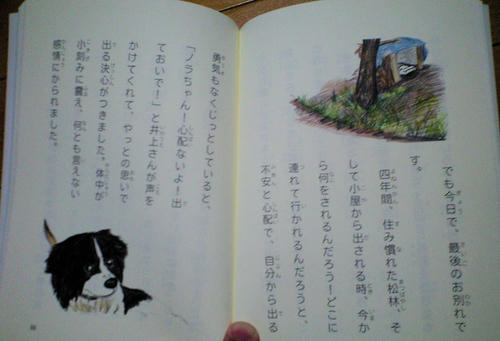 でも今日で、最後のお別れで
す。
四年間、住み慣れた松林、そ
して小屋から出される時、今か
ら何をされるんだろう！どこに
連れて行かれるんだろうと、
不安と心配で、自分から出る
勇気もなくじっとしていると、
「ノラちゃん！心配ないよ！出
ておいで！」と井上さんが声を
かけてくれて、やっとの思いで
出る決心がつきました。体中が
小刻みに震え、何とも言えない
感情にかられました。